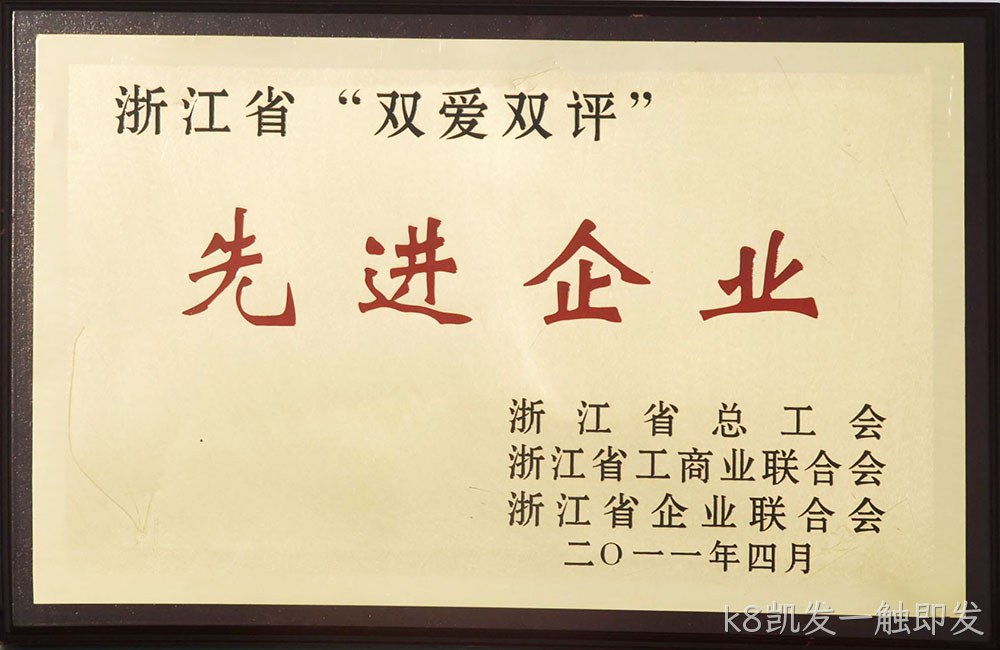 浙江省“双爱双评”
先进企业
浙江省总工会
浙江省工商业联合会
浙江省企业联合会
二〇一一年四月
k8凯发一触即发